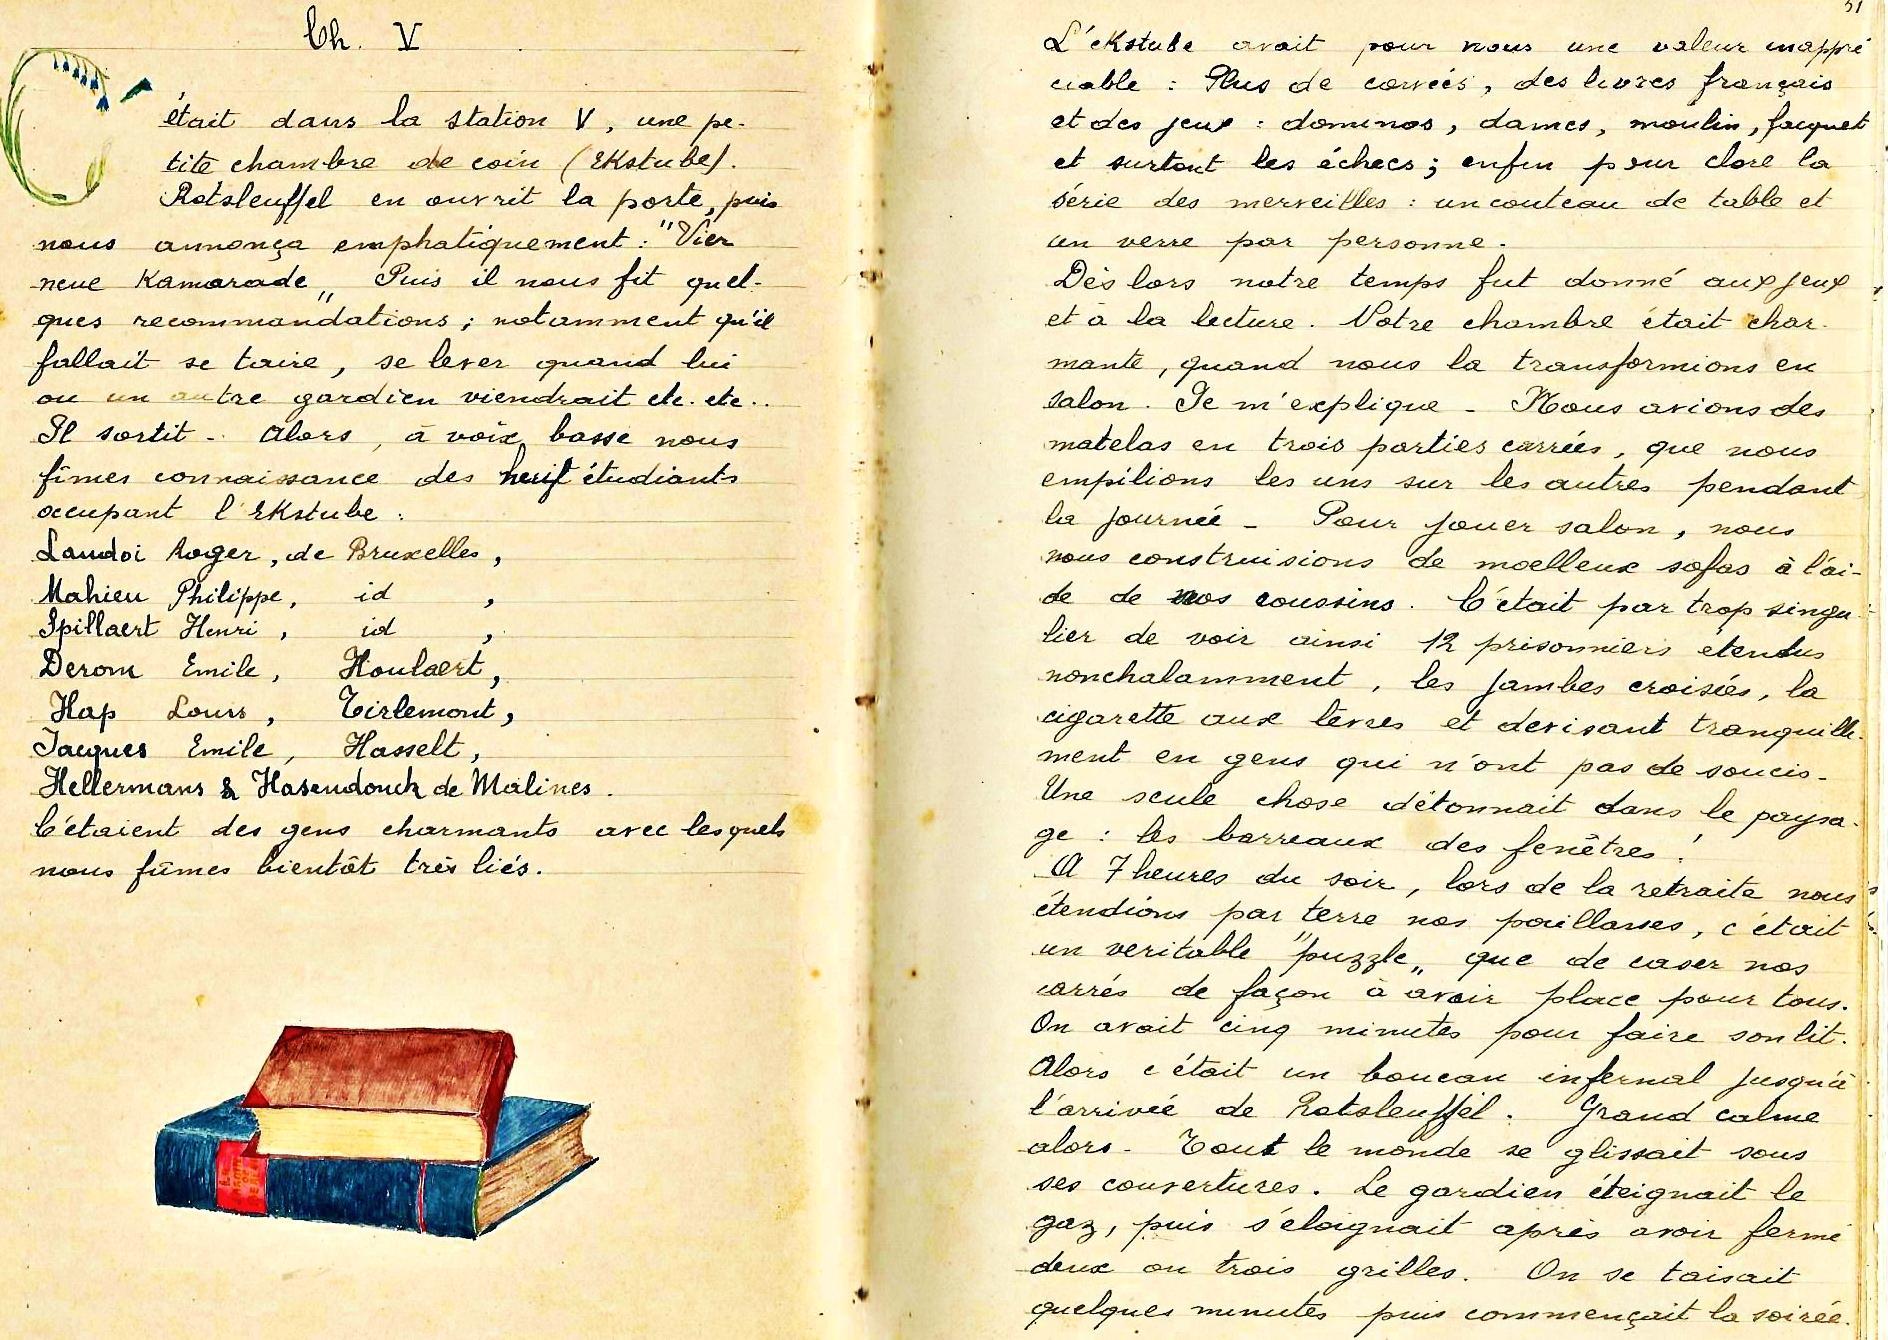 Ch. V
C'était dans la station V, une pe-
tite chambre de coin (Ekstube).
Rotsleuffel en ouvrit la porte, puis
nous annonça emphatiquement : "Vier
neue Kamarade„ Puis il nous fit quel-
ques recommandations ; notamment qu'il
fallait se taire, se lever quand lui
ou un autre gardien viendrait etc. etc..
Il sortit - Alors, à voix basse nous
fîmes connaissance des étudiants
occupant l'Ekstube :
Landoi Roger, de Bruxelles,
Mahieu Philippe, id ,
Spillaert Henri, id ,
Derom Emile, Houlaert,
Hap Louis, Tirlemont,
Jacques Emile, Hasselt,
Hellermans & Hasendonck de Malines.
C'étaient des gens charmants avec lesquels
nous fûmes bientôt très liés.
51
L'ekstube avait pour nous une valeur inappré
ciable : Plus de corvées, des livres français
et des jeux : dominos, dames, moulin, jacquet
et surtout les échecs ; enfin pour clore la
série des merveilles : un couteau de table et
un verre par personne.
Dès lors notre temps fut donné aux jeux
et à la lecture. Notre chambre était char-
mante, quand nous la transformions en
salon. Je m'explique - Nous avions des
matelas en trois parties carrées, que nous
empilions les uns sur les autres pendant
la journée - Pour jouer salon, nous
nous construisions de moelleux sofas à l'ai-
de de nos coussins. C'était par trop singu-
lier de voir ainsi 12 prisonniers étendus
nonchalamment, les jambes croisées, la
cigarette aux lèvres et devisant tranquille-
ment en gens qui n'ont pas de soucis-
Une seule chose détonnait dans le paysa-
ge : les barreaux des fenêtres !
A 7 heures du soir, lors de la retraite nous
étendions par terre nos paillasses, c'était
un veritable "puzzle„ que de caser nos
carrés de façon à avoir place pour tous.
On avait cinq minutes pour faire son lit.
Alors c'était un boucan infernal jusqu'à
l'arrivée de Rotsleuffel. Grand calme
alors- Tout le monde se glissait sous
ses couvertures. Le gardien éteignait le
gaz, puis s'éloignait après avoir fermé
deux ou trois grilles. On se taisait
quelques minutes puis commençait la soirée.